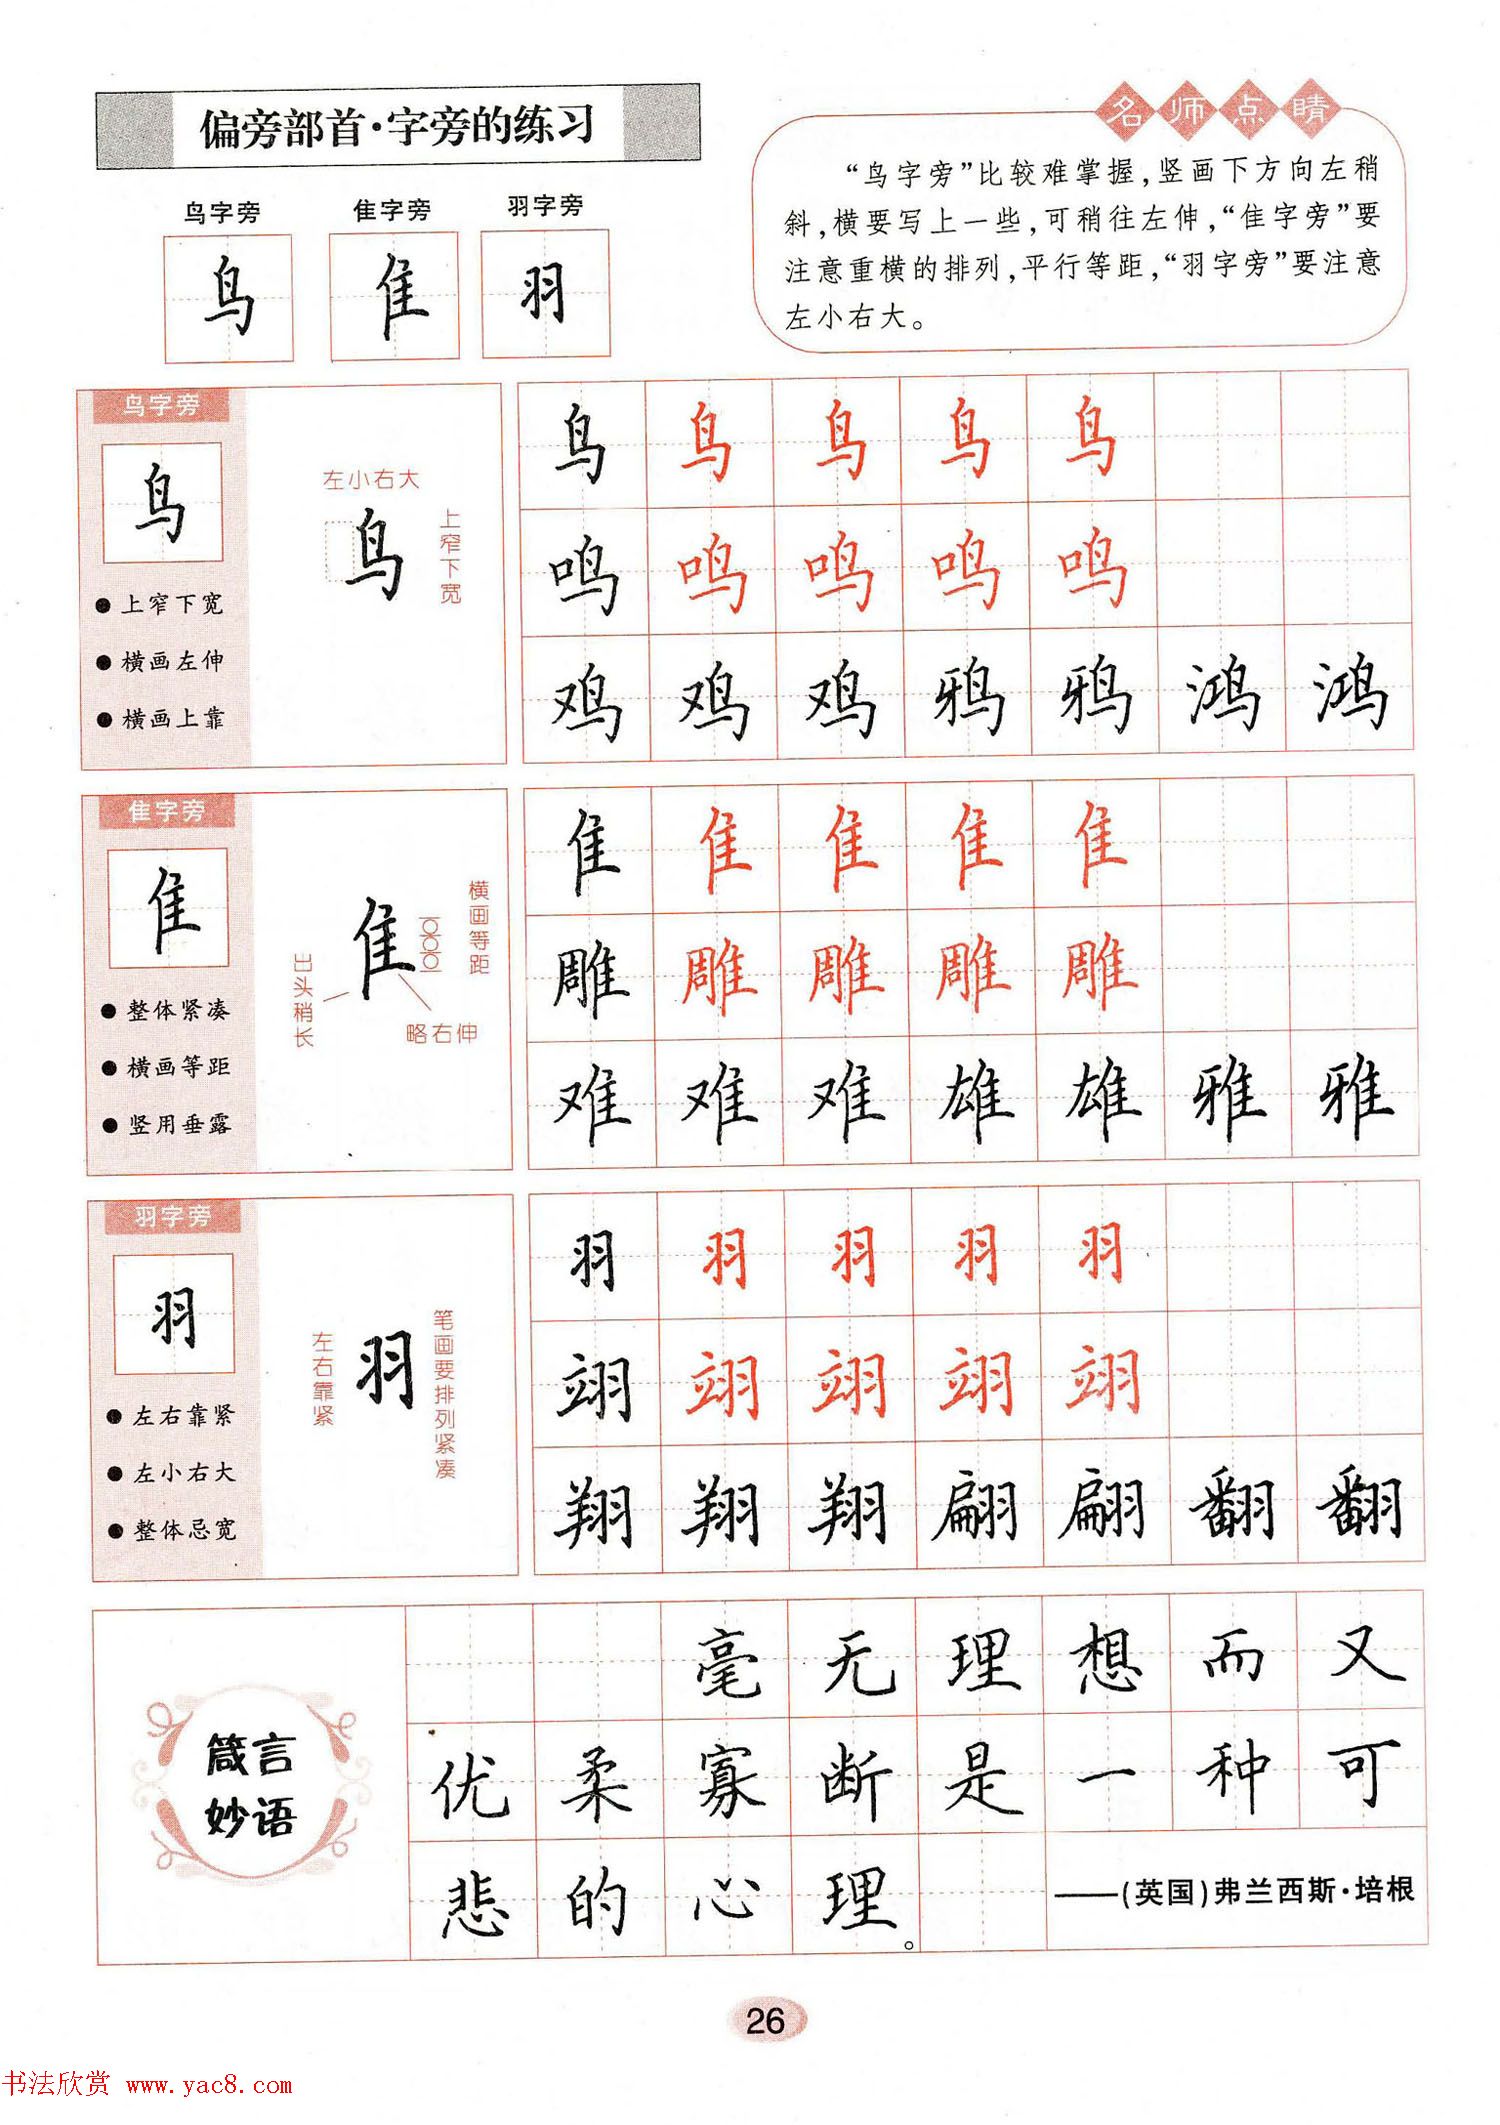 偏旁部首·字旁的练习
名师点睛
“鸟字旁”比较难掌握,竖画下方向左稍
斜,横要写上一些,可稍往左伸,“隹字旁”要
注意重横的排列,平行等距,“羽字旁”要注意
左小右大。
鸟字旁 隹字旁 羽字旁
鸟 隹 羽
鸟字旁
鸟
●上窄下宽
●横画左伸
●横画上靠
左小右大
鸟
上窄下宽
鸟 鸟 鸟 鸟 鸟
鸣 鸣 鸣 鸣 鸣
鸡 鸡 鸡 鸦 鸦 鸿 鸿
隹字旁
隹
●整体紧凑
●横画等距
●竖用垂露
出头稍长
隹
横画等距
略右伸
隹 隹 隹 隹 隹
雕 雕 雕 雕 雕
难 难 难 雄 雄 雅 雅
羽字旁
羽
●左右靠紧
●左小右大
●整体忌宽
左右靠紧
羽
笔画要排列紧凑
羽 羽 羽 羽 羽
翊 翊 翊 翊 翊
翔 翔 翔 翩 翩 翻 翻
箴言
妙语
毫无理想而又
优柔寡断是一种可
悲的心理。
——(英国)弗兰西斯·培根
26
书法欣赏 www.yac8.com